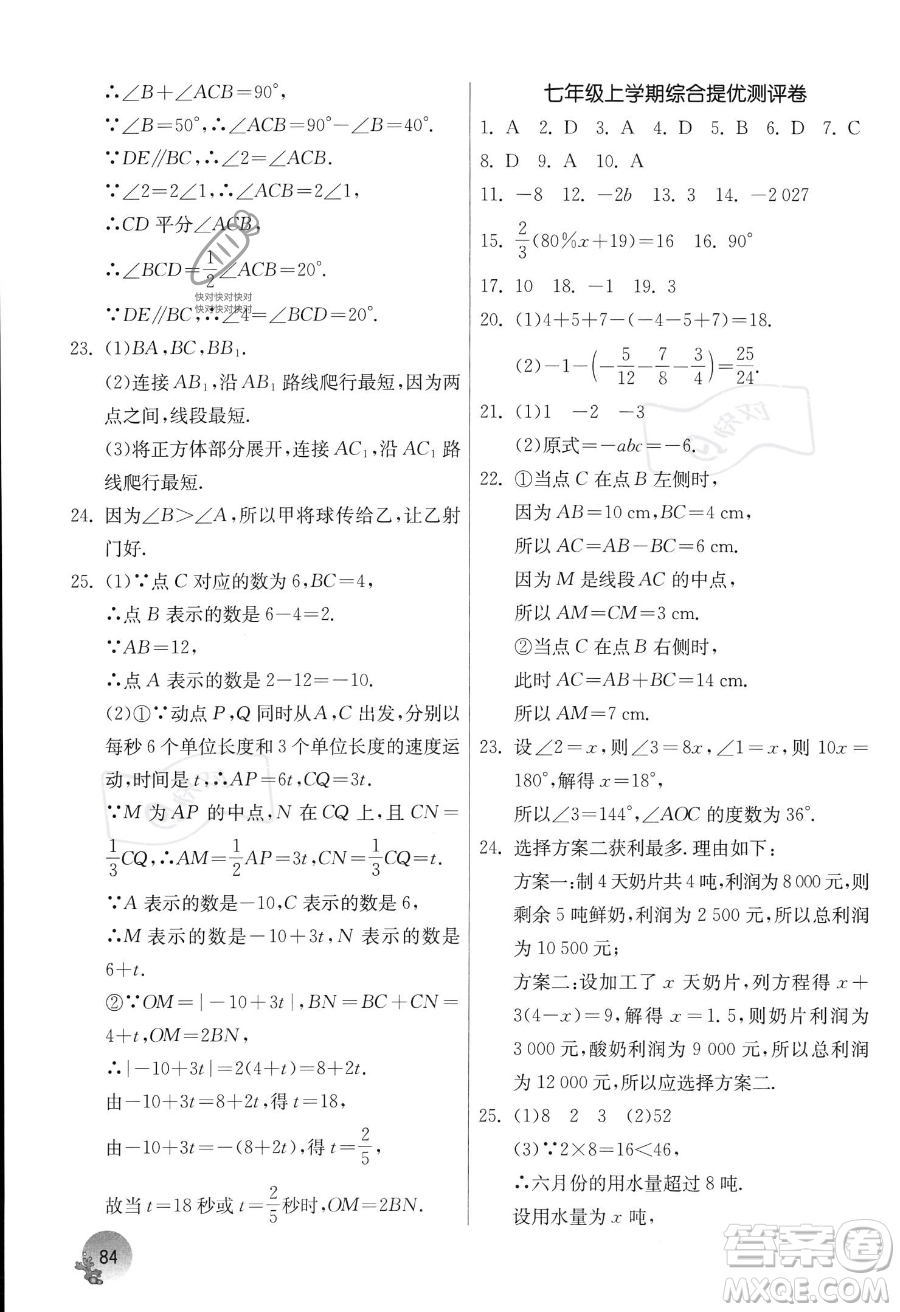 ∴∠B+∠ACB=90°,
∵∠B=50°,∴∠ACB=90°−∠B=40°.
∵DE∥BC,∴∠2=∠ACB.
∵∠2=2∠1,∴∠ACB=2∠1,
∴CD 平分∠ACB,
∴∠BCD=1/2∠ACB=20°.
∵DE∥BC,∴∠4=∠BCD=20°.
快对快对快对
快对快对快对
23. (1)BA,BC,BB₁.
(2)连接 AB₁,沿 AB₁ 路线爬行最短,因为两
点之间,线段最短.
(3)将正方体部分展开,连接 AC₁,沿 AC₁ 路
线爬行最短.
24. 因为∠B>∠A,所以甲将球传给乙,让乙射
门好.
25. (1)∵点 C 对应的数为 6,BC=4,
∴点 B 表示的数是 6−4=2.
∵AB=12,
∴点 A 表示的数是 2−12=−10.
(2)①∵动点 P,Q 同时从A,C 出发,分别以
每秒 6 个单位长度和 3 个单位长度的速度运
动,时间是 t,∴AP=6t,CQ=3t.
∵M 为 AP 的中点,N 在 CQ 上,且 CN=
1/3CQ,∴AM=1/2AP=3t,CN=1/3CQ=t.
∵A 表示的数是−10,C 表示的数是 6,
∴M 表示的数是−10+3t,N 表示的数是
6+t.
②∵OM=|−10+3t|,BN=BC+CN=
4+t,OM=2BN,
∴|−10+3t|=2(4+t)=8+2t.
由−10+3t=8+2t,得 t=18,
由−10+3t=−(8+2t),得 t=2/5,
故当 t=18 秒或 t=2/5秒时,OM=2BN.
84
七年级上学期综合提优测评卷
1. A 2. D 3. A 4. D 5. B 6. D 7. C
8. D 9. A 10. A
11. −8 12. −2b 13. 3 14. −2 027
15. 2/3(80%x+19)=16 16. 90°
17. 10 18. −1 19. 3
20. (1)4+5+7−(−4−5+7)=18.
(2)−1−(−5/12−7/8−3/4)=25/24.
21. (1)1 −2 −3
(2)原式=−abc=−6.
22. ①当点 C 在点 B 左侧时,
因为 AB=10 cm,BC=4 cm,
所以 AC=AB−BC=6 cm.
因为 M 是线段 AC 的中点,
所以 AM=CM=3 cm.
②当点 C 在点 B 右侧时,
此时 AC=AB+BC=14 cm.
所以 AM=7 cm.
23. 设∠2=x,则∠3=8x,∠1=x,则 10x=
180°,解得 x=18°,
所以∠3=144°,∠AOC 的度数为 36°.
24. 选择方案二获利最多.理由如下:
方案一:制 4 天奶片共 4 吨,利润为 8 000 元,则
剩余 5 吨鲜奶,利润为 2 500 元,所以总利润
为 10 500 元;
方案二:设加工了 x 天奶片,列方程得 x+
3(4−x)=9,解得 x=1.5,则奶片利润为
3 000 元,酸奶利润为 9 000 元,所以总利润
为 12 000 元,所以应选择方案二.
25. (1)8 2 3 (2)52
(3)∵2×8=16<46,
∴六月份的用水量超过 8 吨.
设用水量为 x 吨,
答案卷
MXQE.COM